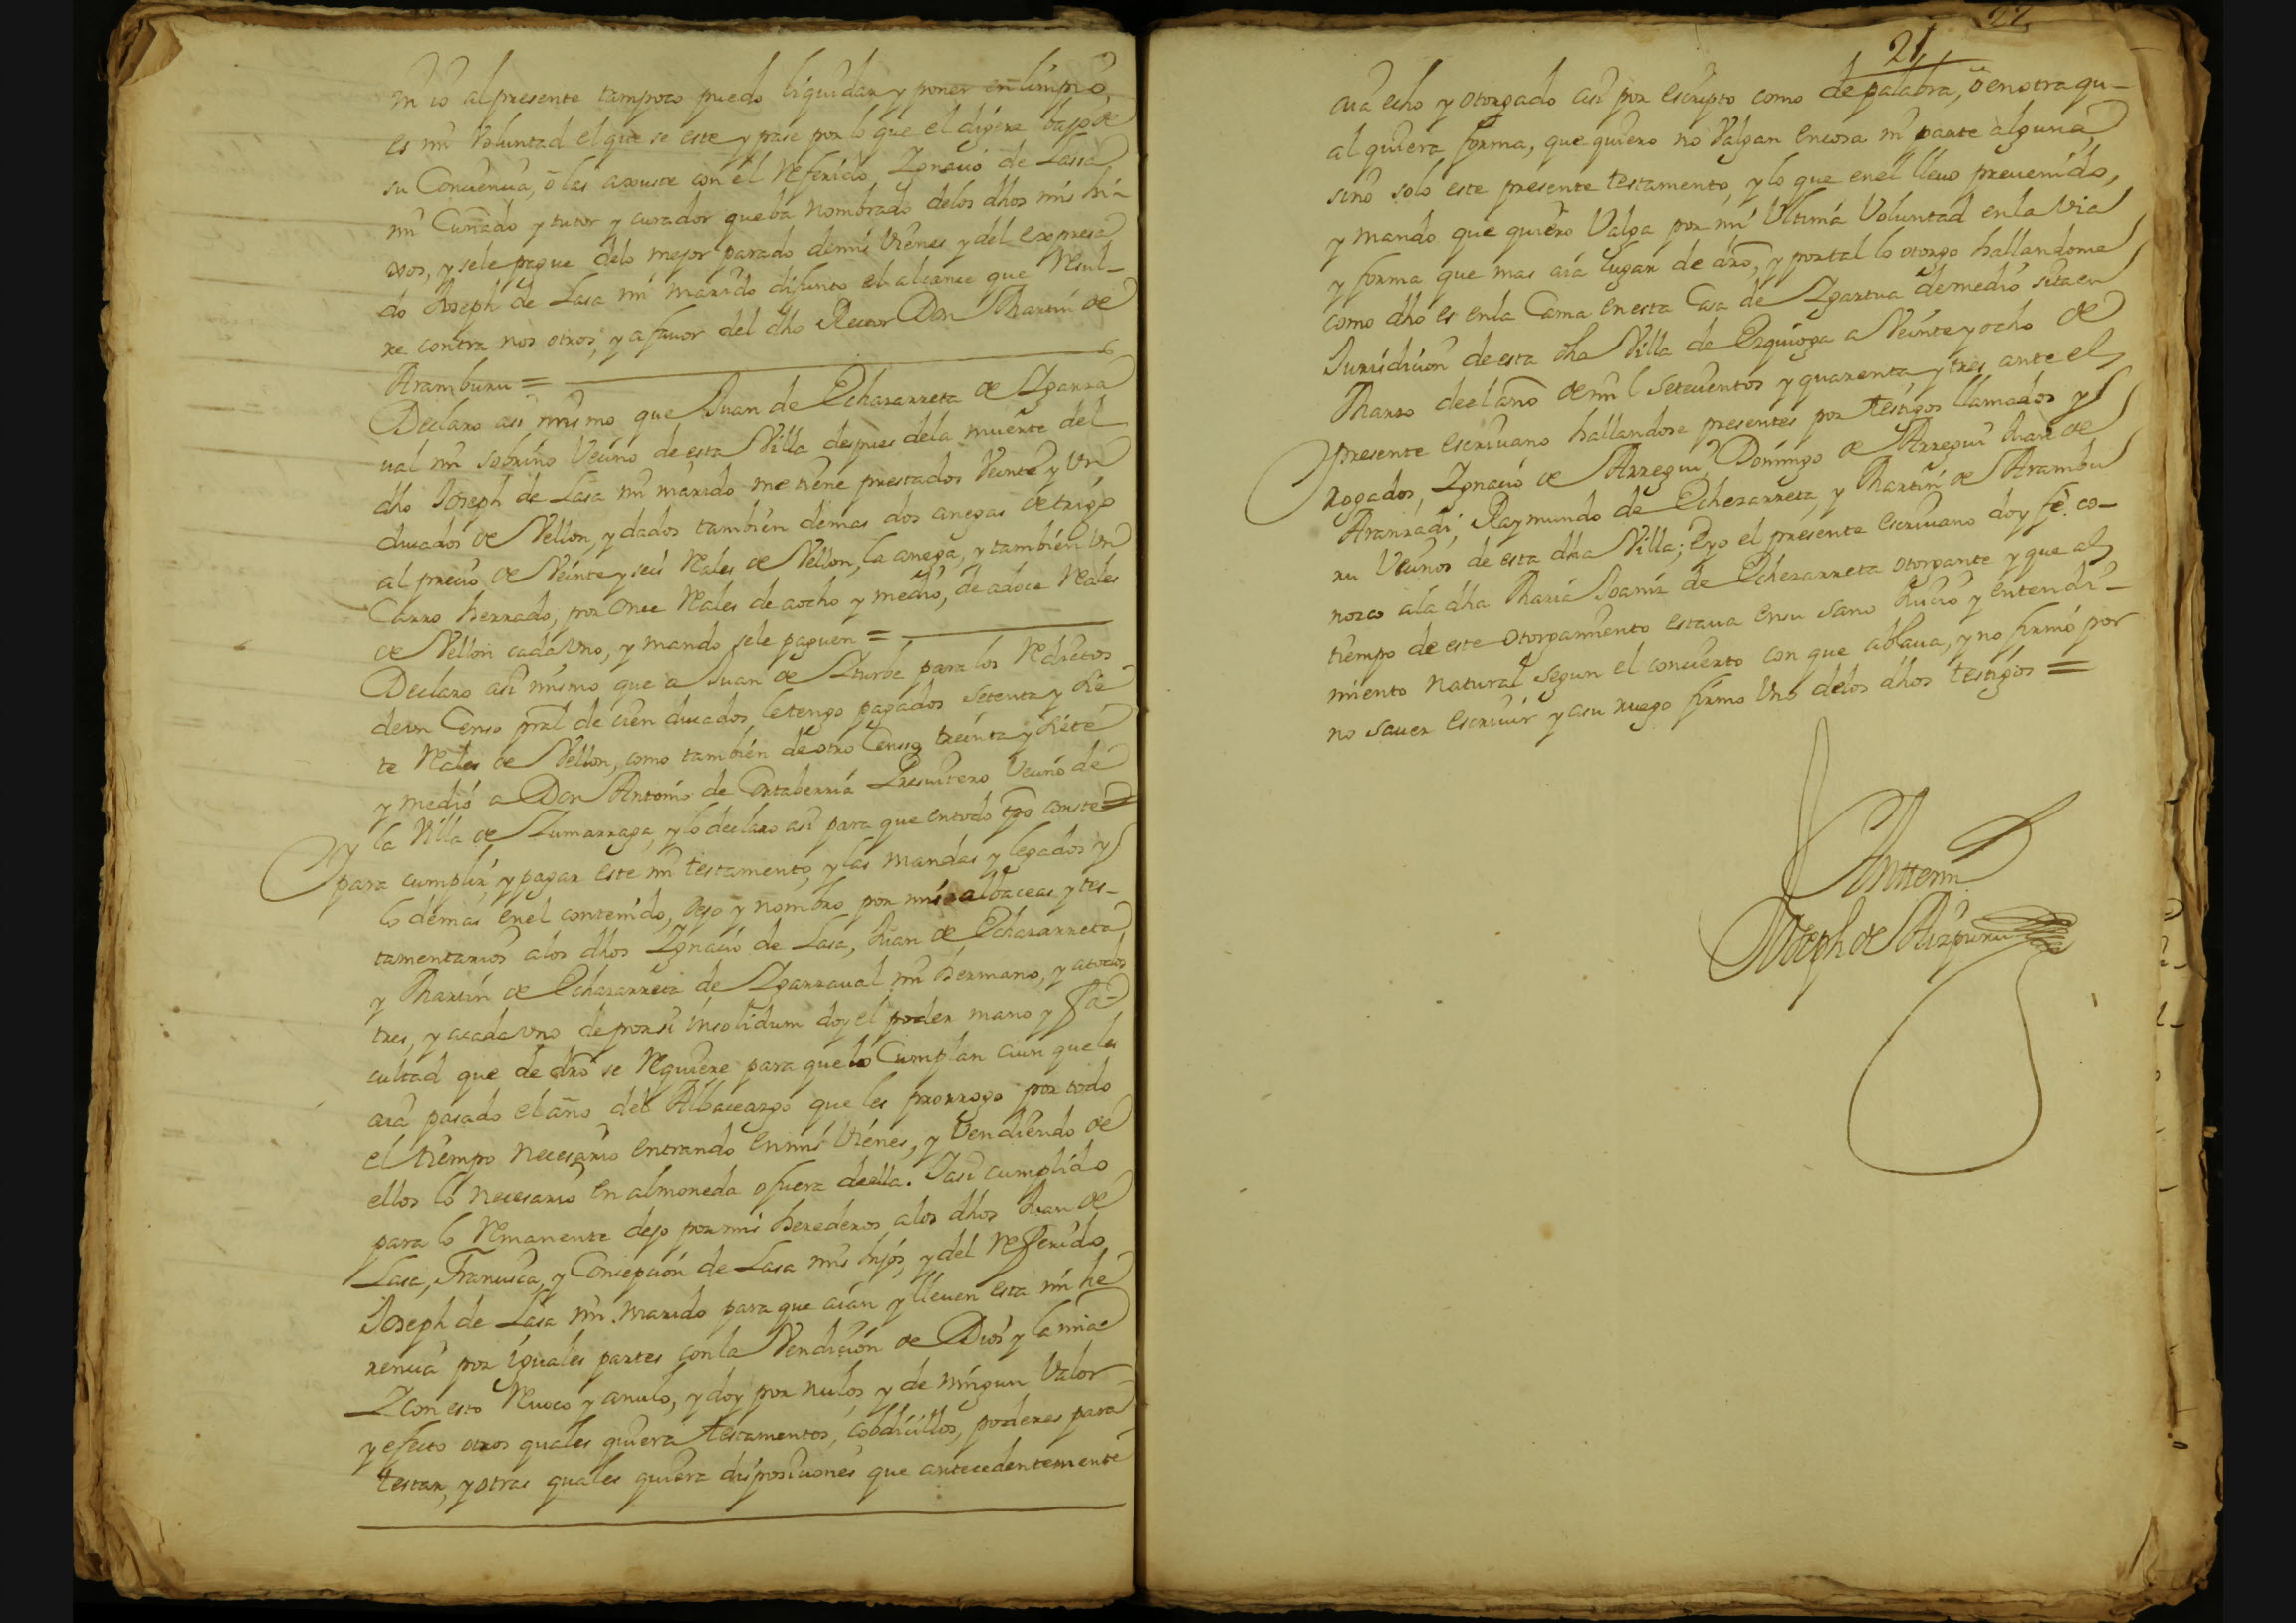 ni io al presente tampoco puedo liquidar y poner en limpio,
es mi Voluntad el que se este y pase por lo que el digere vajo de
su Conciencia, ò las ajouste con el referido Ygnacio de Lassa
mi Cuñado y tutor y curador queba nombrado delos dhos mis hi-
xos, y sele pague delo mejor parado demis vienes y del expresa
do Joseph de Lasa mi marido difunto el alcance que resul-
re contra nos otros, y a favor del dho Rector Don Martin de
Aramburu =
Declaro asi mismo que Juan de Echazarreta de Ygarza
ual mi sobrino Vecino de esta Villa despues dela muerte del
dho Joseph de Lasa mi marido me tiene prestados Veinte y Un
ducados de Vellon, y dados tambien demas dos anegas de trigo
al precio de Veinte y seis reales de Vellon, la anega, y tambien Un
Carro herrado, por once reales de aocho y medio, de adoce reales
de Vellon cada Uno, y mando sele paguen =
Declaro asi mismo que a Juan de Yturbe para los reditos
de un Censo pral de cien ducados, le tengo pagados setenta y sie
te reales de Vellon, como tambien de otro Censo treinta y siete
y medio a Don Antonio de Ortaberria Presuitero Vecino de
la Villa de Zumarraga, y lo declaro asi para que entodo tpo conste =
Y para cumplir, y pagar este mi testamento, y las mandas y legados y
lo demas enel contenido, dejo y nombro por mis albaceas y tes-
tamentarios alos dhos Ygnacio de Lasa, Juan de Echazarreta
y Martin de Echazarreta de Ygarzaual mi hermano, y atodos
tres, y acada Uno de por si insolidum doy el poder mano y fa-
cultad que de dro se requiere para que lo Cumplan aun que les
aia pasado el año del Albaceazgo que les prorrogo por todo
el tiempo necesario entrando en mis vienes, y Vendiendo de
ellos lo necesario en almoneda o fuera de ella. Y asi cumplido
para lo remanente dejo por mis herederos alos dhos Juan de
Lasa, Francisca, y Concepcion de Lasa mis hijos, y del referido
Joseph de Lasa mi marido para que aian y lleuen esta mi he
rencia por iguales partes con la Vendicion de Dios y la mia
Y con esto reuoco y anulo, y doy por nulos, y de ningun Valor
y efecto otros quales quiera testamentos, cobdicillos, poderes para
testar, y otras quales quiera disposiciones que antecedentemente
22
21
aia echo y otorgado asi por escripto como de palabra, ò en otra qu-
al quiera forma, que quiero no Valgan encosa ni parte alguna
sino solo este presente testamento, y lo que enel lleuo preuenido,
y mando que quiero Valga por mi Ultima Voluntad en la via
y forma que mas aia lugar de dro, y por tal lo otorgo hallandome
como dho es en la Cama en esta Casa de Ygartua de medio sita en
Jurisdicion de esta dha Villa de Ezquioga a Veinte y ocho de
Marzo de el año de mil setecientos y quarenta y tres, ante el
presente escriuano hallandose presentes por testigos llamados y
rogados, Ygnacio de Arregui, Domingo de Arregui Juan de
Aranzadi, Raymundo de Echezarreta, y Martin de Arambu
ru Vecinos de esta dha Villa; E yo el presente escriuano doy fe co-
nozco ala dha Maria Joaniz de Echezarreta otorgante y que al
tiempo de este otorgamiento estaua ensu sano Juicio y entendi-
miento natural segun el concierto con que ablaua, y no firmó por
no sauer escriuir y asu ruego firmo Uno delos dhos testigos =
Anttemi
Joseph de Aizpuru